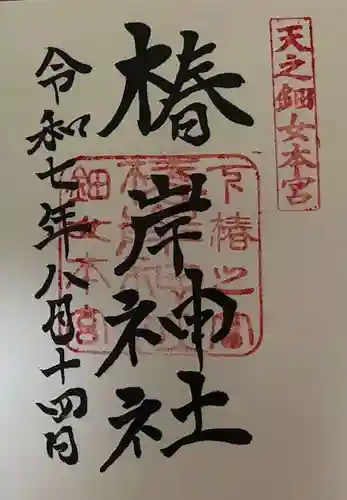 天之鈿女本宮
椿岸神社
令和七年八月十四日